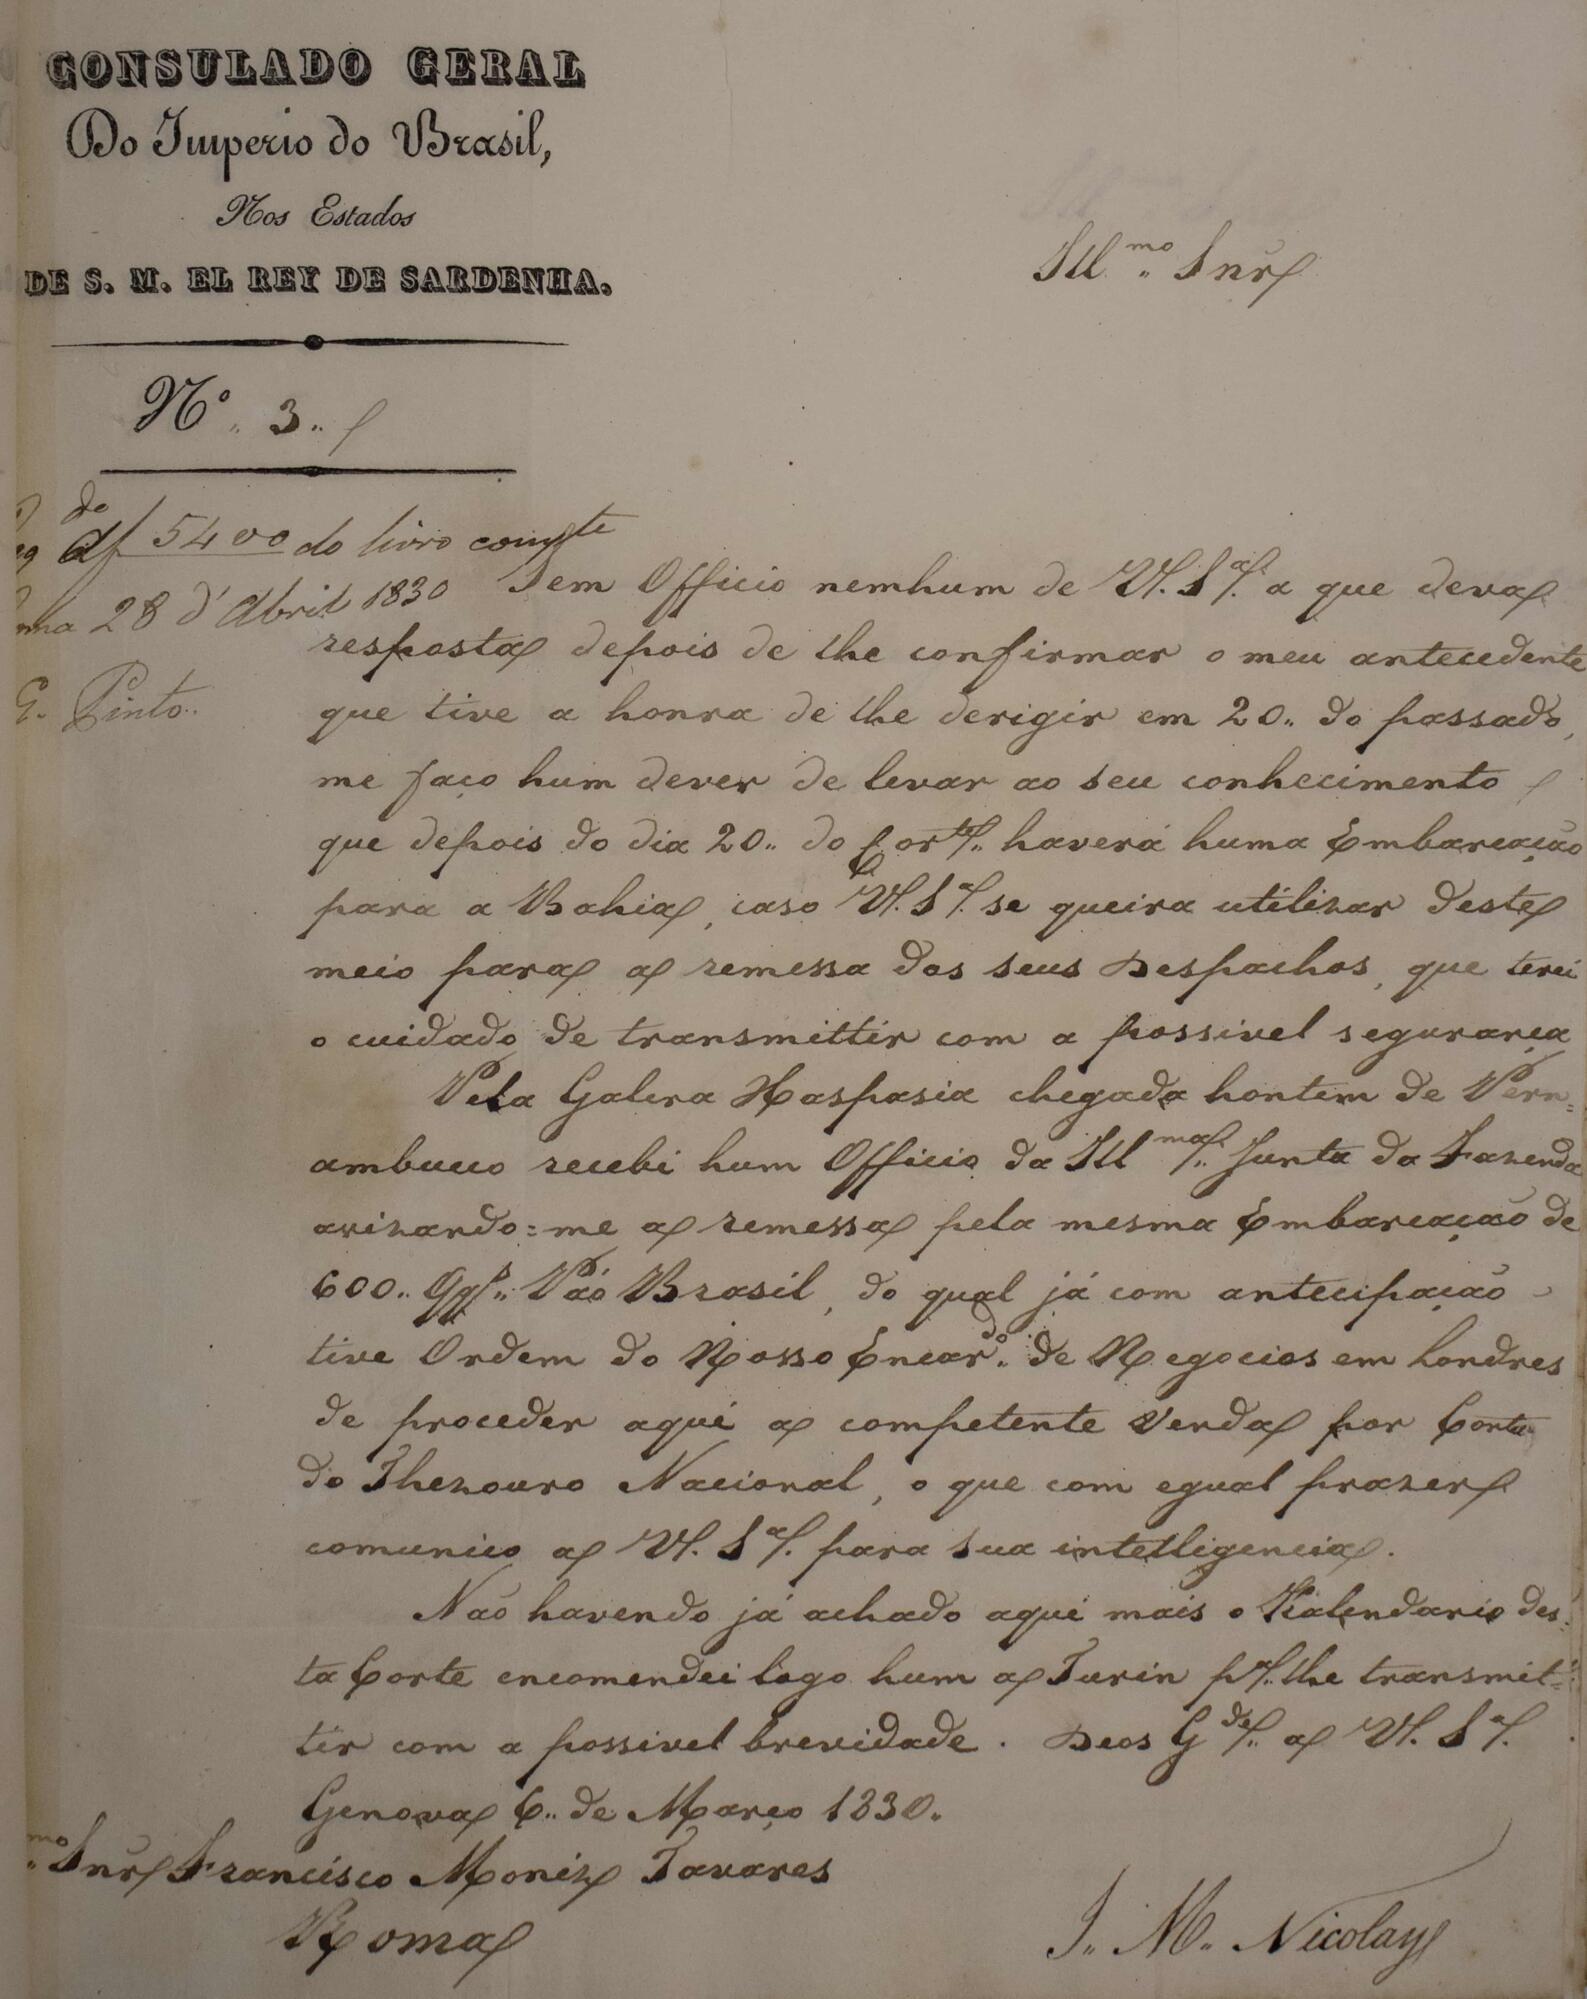 CONSULADO GERAL
Do Imperio do Brasil,
Nos Estados
DE S. M. EL REY DE SARDENHA.
Illmo.. Snr
No.. 3..
do
af 54 vo do livro compte
28 d'Abril 1830
G. Pinto..
Sem Officio nemhum de V. Sa. a que deva
resposta depois de lhe confirmar o meu antecedente
que tive a honra de lhe derigir em 20.. do passado,
me faço hum dever de levar ao seu conhecimento
que depois do dia 20.. do Corte.. haverá huma Embarcação
para a Bahia, caso V. Sa. se queira utilizar deste
meio para a remessa dos seus Despachos, que terei
o cuidado de transmittir com a possivel segurança
Pela Galera Haspasia chegada hontem de Pern=
ambuco recebi hum Officio da Illma.. Junta da Fazenda
avizando=me a remessa pela mesma Embarcação de
600.. Qqs.. Páo Brasil, do qual já com antecipação
tive Ordem do Nosso Encardo.. de Negocios em Londres
de proceder aqui a competente venda por Conta
do Thezouro Nacional, o que com egual prazer
comunico a V. Sa. para sua intelligencia.
Não havendo já achado aqui mais o Kalendario des=
ta Corte encomendei logo hum a Turin pa.. lhe transmit=
tir com a possivel brevidade. Deos Gde.. a V. Sa.
Genova 6.. de Março 1830..
mo.. Snr Francisco Moniz Tavares
Roma
J.. M.. Nicolay